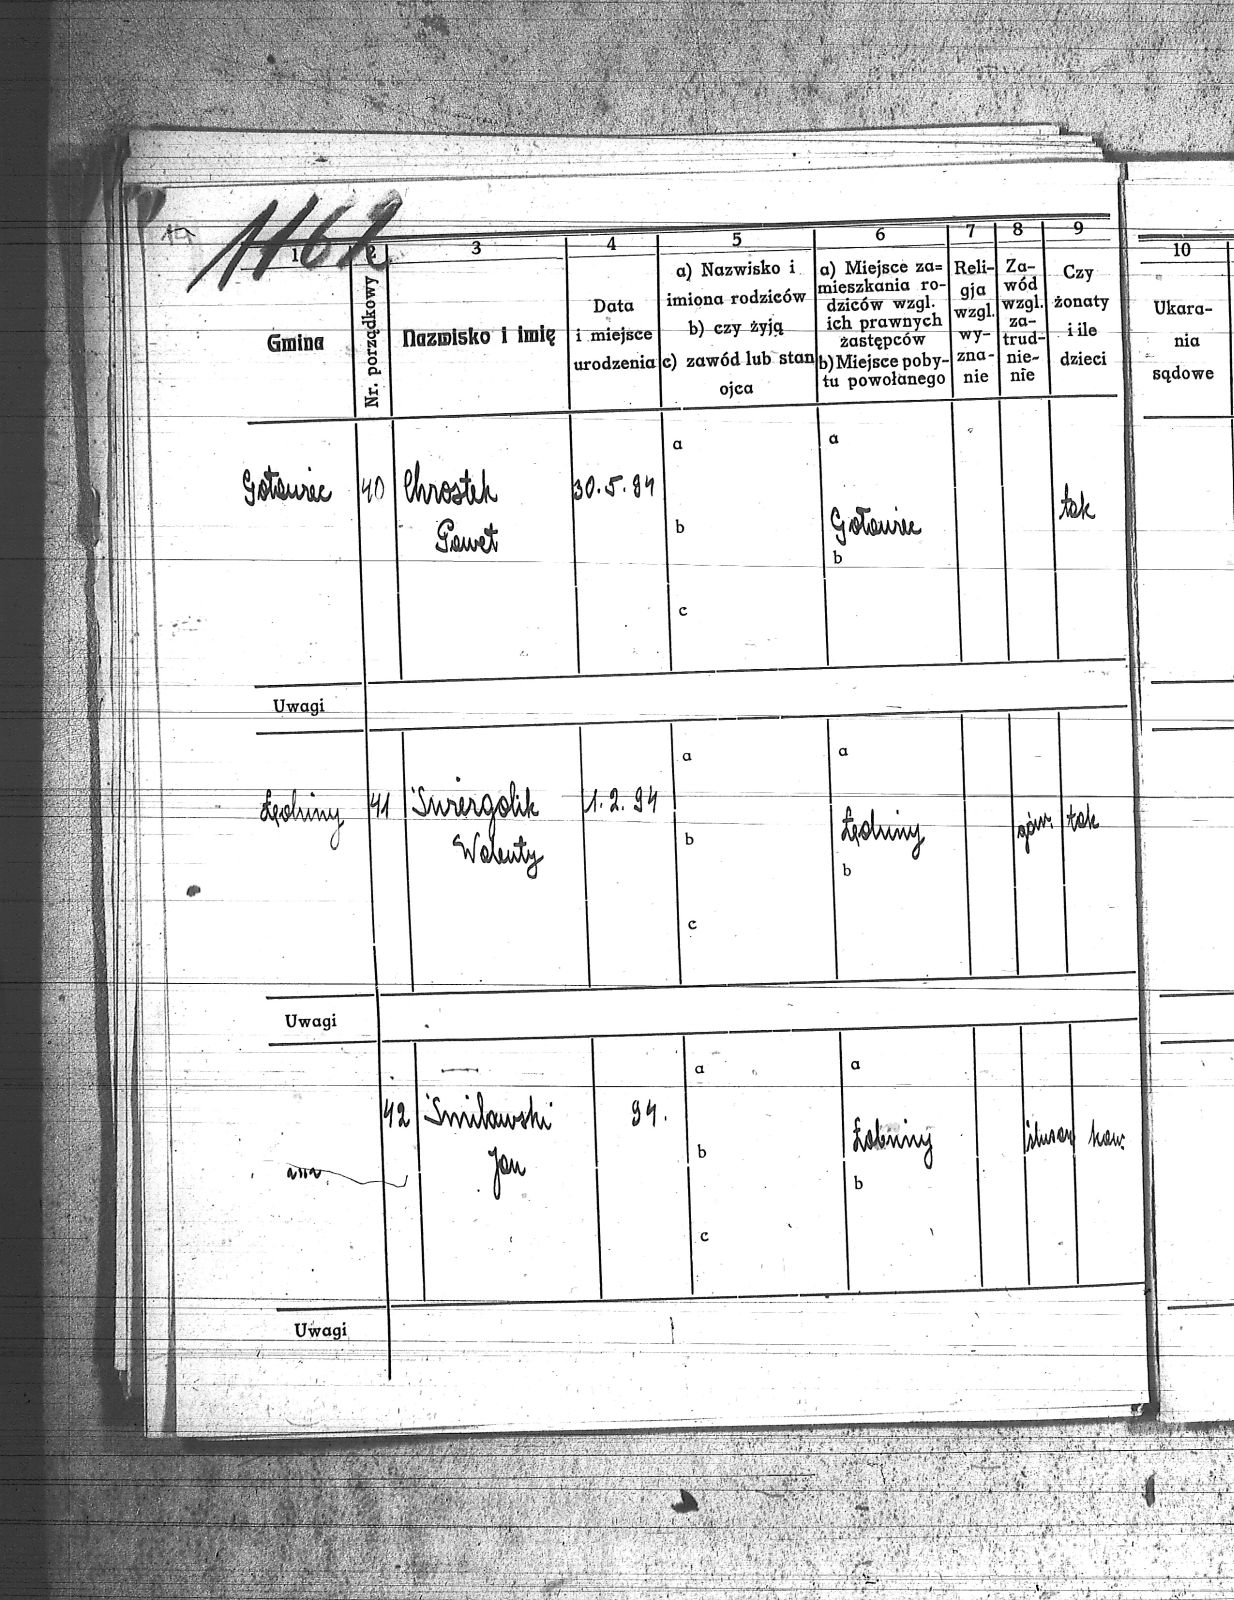 1162
1 2 3 4 5 6 7 8 9 10
Gmina
Nr. porządkowy
Nazwisko i imię
Data
i miejsce
urodzenia
a) Nazwisko i
imiona rodziców
b) czy żyją
c) zawód lub stan
ojca
a) Miejsce za=
mieszkania ro-
dziców wzgl.
ich prawnych
zastępców
b) Miejsce poby-
tu powołanego
Reli-
gja
wzgl.
wy-
zna-
nie
Za-
wód
wzgl.
za-
trud-
nie-
nie
Czy
żonaty
i ile
dzieci
Ukara-
nia
sądowe
Goławiec 40 Chrostek 30.5.94 a a
Paweł b Goławiec tak
b
c
Uwagi
Lędziny 41 Świergolik 1.2.94 a a
Walenty b Lędziny gór. tak
b
c
Uwagi
42 Smilowski 94. a a
Jan b ślusar kaw.
b
c
Uwagi